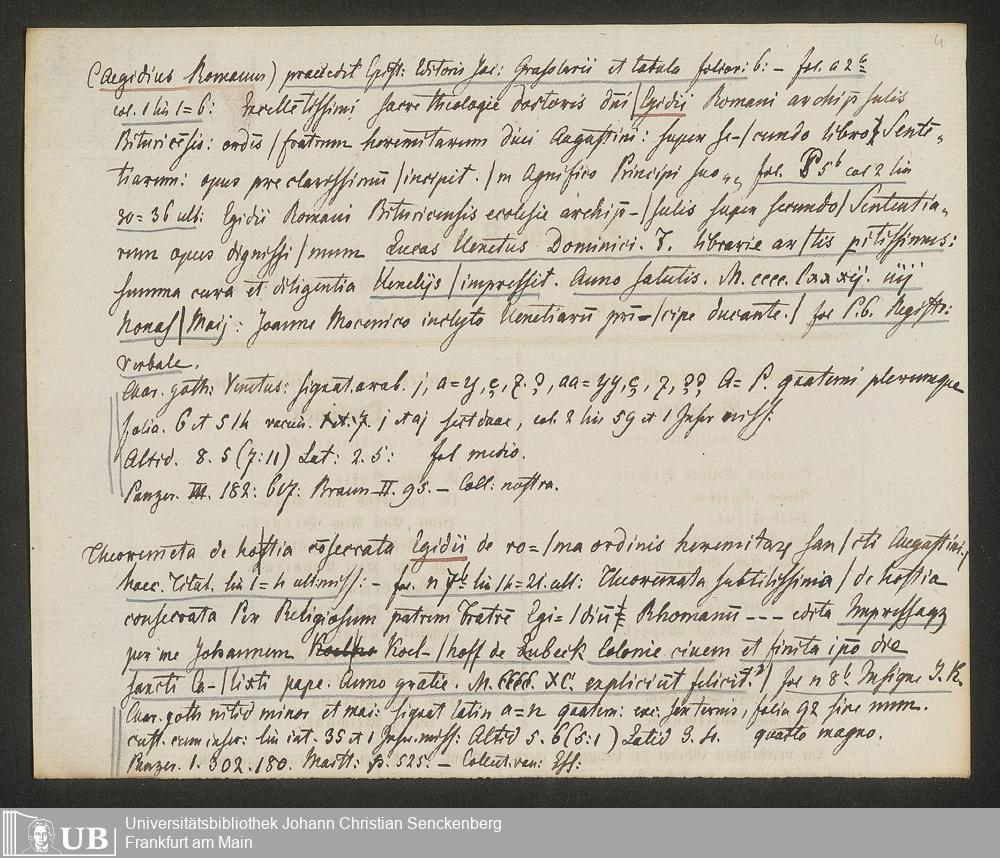 4
(Aegidius Romanus) praecedit Epist: Editoris Jac: Grasolarii et tabula folior: 6: – fol. a 2 a
col. 1 lin 1=6: Excellētissimi sacre theologie doctoris dn̄i | Egidii Romani archip̄sulis
Bituricēsis: ordīs / fratrum heremitarum diui Augustini: super se-/cundo libro Sentē-
tiarum: opus preclarissimū / incipit. / m Agnifico Principi suo fol. P 5 b col 2 lin
30=36 ult: Egidii Romani Bituricensis ecclesie archip̄-/sulis super secundo / Sententia-
rum opus dignissi / mum Lucas Uenetus Dominici. F. librarie ar/tis pitissimus:
summa cura et diligentia Uenetijs / impressit. Anno salutis. M. cccc. lxxxij. iiij
Nonas / Maij: Joanne Mocenico inclyto Uenetiarū pri=/cipe ducante. / fol P.6. Registr:
verbale.
Char. goth: Venetus: signat. arab. j, a=y, aa=yy, A= P. quaterni plerumque
folia. 6 et 514 vacuis. j et aj sext duae, col. 2 lin 59 et 1 Infer miss:
Altid. 8. 5 (7:11) Lat: 2. 5: fol medio.
Panzer. III. 182: 617: Braun II. 95. – Coll: nostra.
Theoremeta de hostia cōsecrata Egidii de ro=/ma ordinis heremitarꝫ san/cti Augustini.
haec. Titul. lin 1=4 ult miss: – fol. n 7 b lin 14=21. ult: Theoremata subtilissima / de hostia
consecrata Per Religiosum patrem Fratrē Egi=/diū Rhomanū --- edita Impressaqꝫ
per me Johannem Koel-/hoff de Lubeck Colonie ciuem et finita ipo die
sancti Ca-/lixti pape. Anno gratie. M. CCCC. XC. expliciūt felicit. / fol n 8 b. Insigne J. K.
Char. goth nitid minor et mai: signat latin a=n quatern: exc: sexternus, folia 92 sine num.
cust. cum infer: lin int. 35 et 1 Infer. miss: Altid 5. 6 (5:1) Latid 3. 4. quarto magno.
Panzer. 1. 302. 180. Maitt: p. 525: –
Universitätsbibliothek Johann Christian Senckenberg
Frankfurt am Main
UB